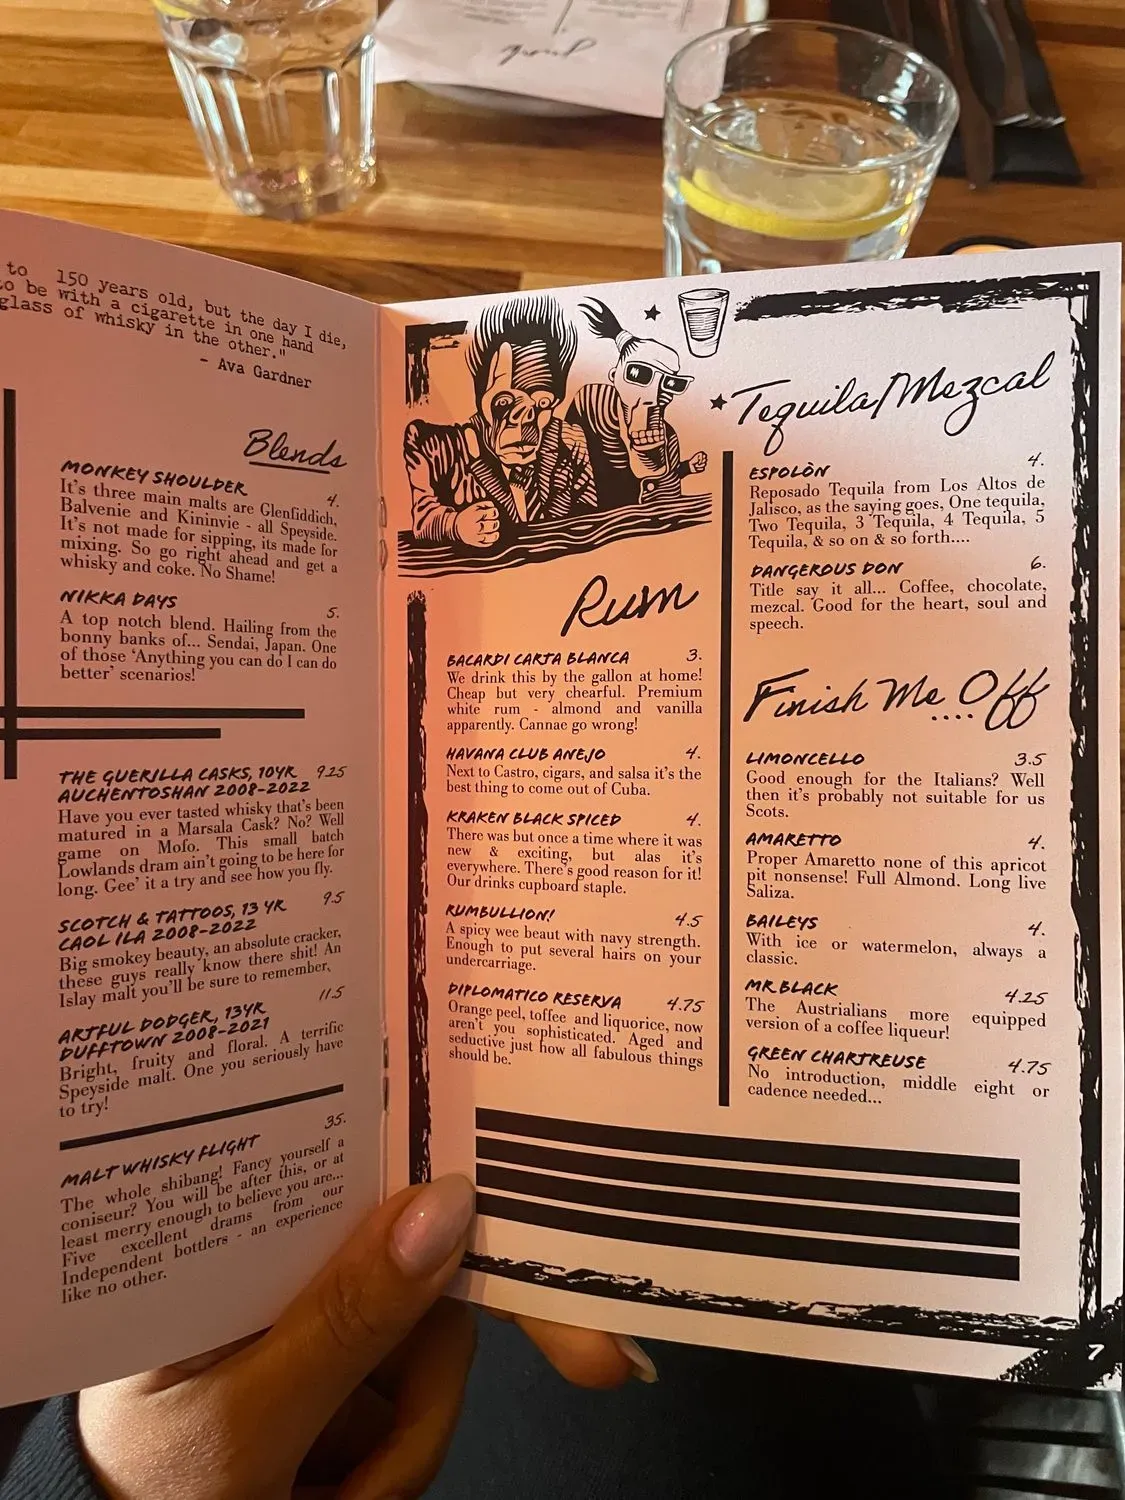 to 150 years old, but the day I die,
to be with a cigarette in one hand
glass of whisky in the other."
- Ava Gardner
Blends
MONKEY SHOULDER
4.
It's three main malts are Glenfiddich,
Balvenie and Kininvie - all Speyside.
It's not made for sipping, its made for
mixing. So go right ahead and get a
whisky and coke. No Shame!
NIKKA DAYS
5.
A top notch blend. Hailing from the
bonny banks of... Sendai, Japan. One
of those 'Anything you can do I can do
better' scenarios!
THE GUERILLA CASKS, 10YR 9.25
AUCHENTOSHAN 2008-2022
Have you ever tasted whisky that's been
matured in a Marsala Cask? No? Well
game on Mofo. This small batch
Lowlands dram ain't going to be here for
long. Gee' it a try and see how you fly.
SCOTCH & TATTOOS, 13 YR 9.5
CAOL ILA 2008-2022
Big smokey beauty, an absolute cracker,
these guys really know there shit! An
Islay malt you'll be sure to remember,
11.5
ARTFUL DODGER, 13YR
DUFFTOWN 2008-2021
Bright, fruity and floral. A terrific
Speyside malt. One you seriously have
to try!
35.
MALT WHISKY FLIGHT
The whole shibang! Fancy yourself a
coniseur? You will be after this, or at
least merry enough to believe you are...
Five excellent drams from our
Independent bottlers - an experience
like no other.
Rum
BACARDI CARTA BLANCA 3.
We drink this by the gallon at home!
Cheap but very chearful. Premium
white rum - almond and vanilla
apparently. Cannae go wrong!
HAVANA CLUB ANEJO 4.
Next to Castro, cigars, and salsa it's the
best thing to come out of Cuba.
KRAKEN BLACK SPICED 4.
There was but once a time where it was
new & exciting, but alas it's
everywhere. There's good reason for it!
Our drinks cupboard staple.
RUMBULLION! 4.5
A spicy wee beaut with navy strength.
Enough to put several hairs on your
undercarriage.
DIPLOMATICO RESERVA 4.75
Orange peel, toffee and liquorice, now
aren't you sophisticated. Aged and
seductive just how all fabulous things
should be.
Tequila/Mezcal
ESPOLÒN 4.
Reposado Tequila from Los Altos de
Jalisco, as the saying goes, One tequila,
Two Tequila, 3 Tequila, 4 Tequila, 5
Tequila, & so on & so forth....
DANGEROUS DON 6.
Title say it all... Coffee, chocolate,
mezcal. Good for the heart, soul and
speech.
Finish Me.... Off
LIMONCELLO 3.5
Good enough for the Italians? Well
then it's probably not suitable for us
Scots.
AMARETTO 4.
Proper Amaretto none of this apricot
pit nonsense! Full Almond. Long live
Saliza.
BAILEYS 4.
With ice or watermelon, always a
classic.
MR BLACK 4.25
The Austrialians more equipped
version of a coffee liqueur!
GREEN CHARTREUSE 4.75
No introduction, middle eight or
cadence needed...
7